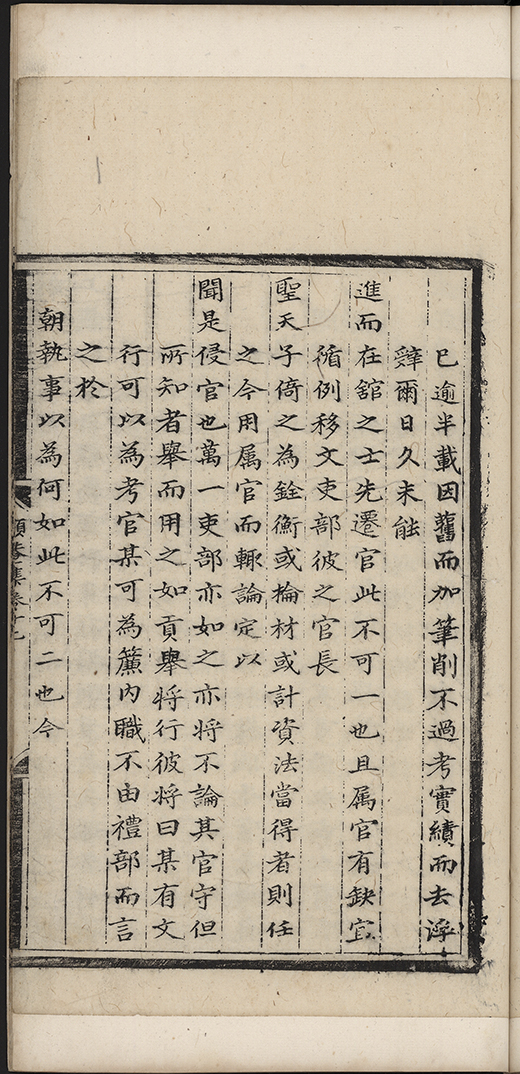 已逾半載因舊而加筆削不過考實績而去浮
辭爾日久未能
進而在舘之士先遷官此不可一也且属官有缺宜
循例移文吏部彼之官長
聖天子倚之為銓衡或掄材或計資法當得者則任
之今用属官而輙論定以
聞是侵官也萬一吏部亦如之亦将不論其官守但
所知者舉而用之如貢舉将行彼将曰某有文
行可以為考官某可為簾内職不由禮部而言
之於
朝執事以為何如此不可二也今
頤菴集卷十九